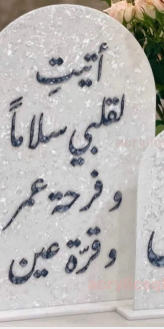 أتيتِ
لقلبي سلاماً
و فرحة عمر
و قرّة عين